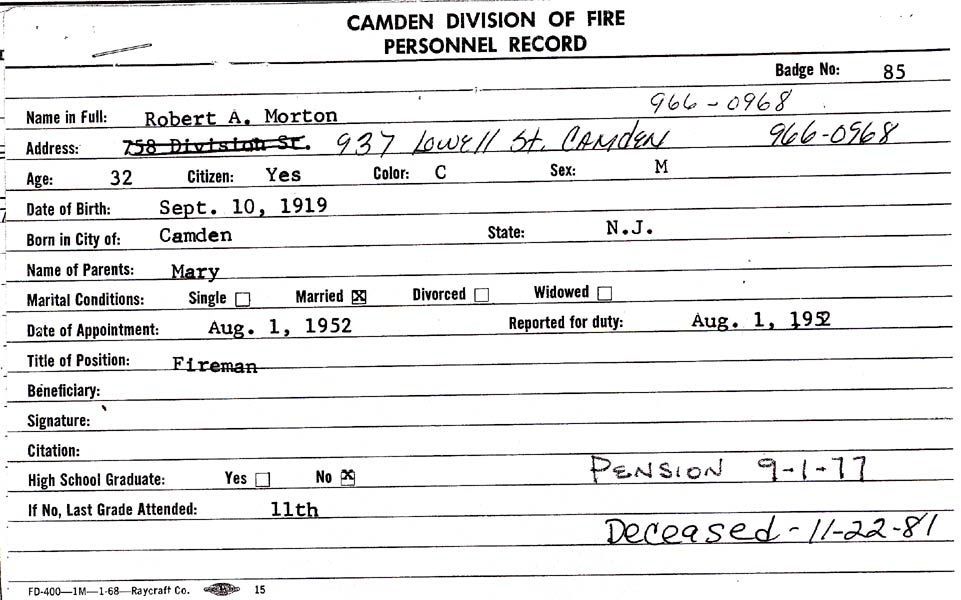 CAMDEN DIVISION OF FIRE
PERSONNEL RECORD
Badge No: 85
966-0968
Name in Full: Robert A. Morton
Address: 758 Division St. 937 Lowell St. CAMDEN 966-0968
Age: 32 Citizen: Yes Color: C Sex: M
Date of Birth: Sept. 10, 1919
Born in City of: Camden State: N.J.
Name of Parents: Mary
Marital Conditions: Single ☐ Married ☒ Divorced ☐ Widowed ☐
Date of Appointment: Aug. 1, 1952 Reported for duty: Aug. 1, 1952
Title of Position: Fireman
Beneficiary:
Signature:
Citation:
High School Graduate: Yes ☐ No ☒ PENSION 9-1-77
If No, Last Grade Attended: 11th
Deceased - 11-22-81
FD-400—1M—1-68—Raycraft Co. 15